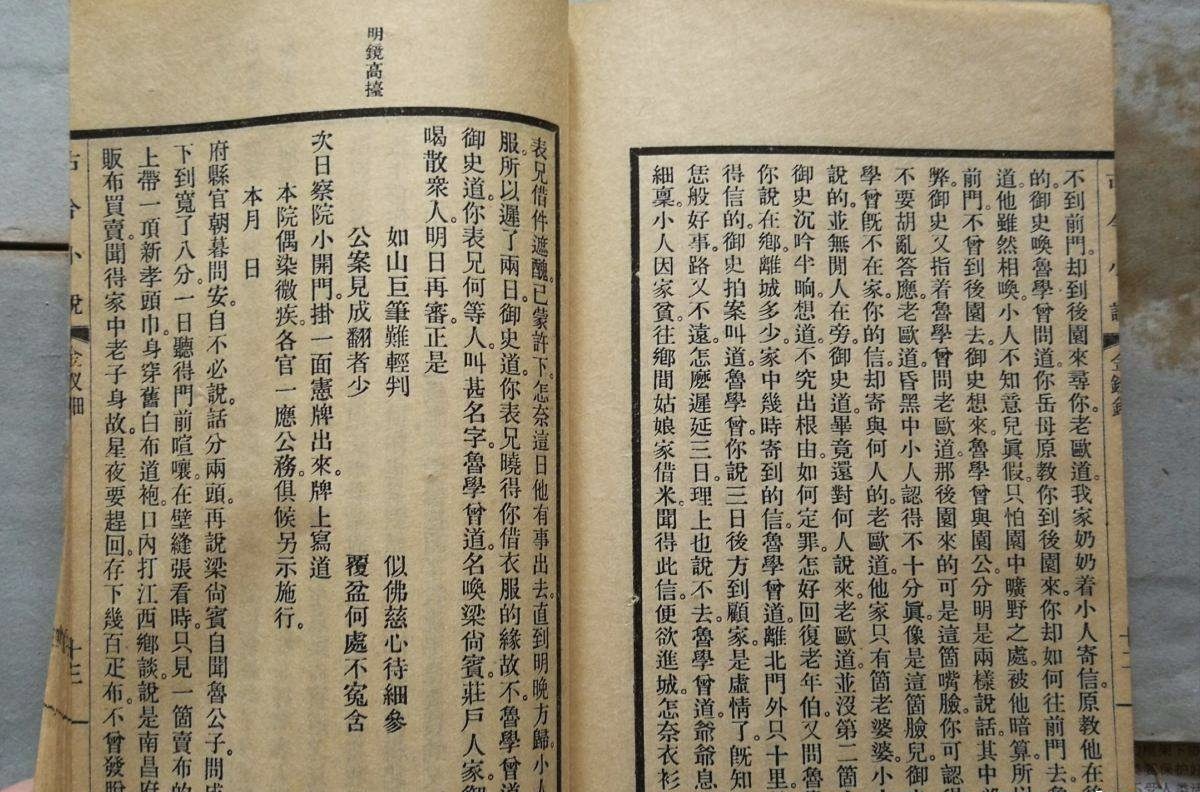 古今小說 金釵鈿 十二
不到前門。却到後園來尋你。老歐道我家奶奶着小人寄信。原教他在後
的。御史喚魯學曾問道。你岳母原教你到後園來。你却如何往前門去。魯
道。他雖然相喚。小人不知意兒眞假。只怕園中曠野之處。被他暗算。所以
前門。不曾到後園去。御史想來。魯學曾與園公分明是兩樣說話。其中
弊。御史又指着魯學曾問老歐道。那後園來的可是這箇嘴臉。你可認得
不要胡亂答應。老歐道。昏黑中小人認得不十分眞。像是這箇臉兒。御
學曾旣不在家。你的信却寄與何人的。老歐道。他家只有箇老婆婆。小
說的。並無閒人在旁。御史道。畢竟還對何人說來。老歐道。並沒第二箇
御史沉吟半晌。想道。不究出根由。如何定罪。怎好回復老年伯。又問魯
你說在鄉。離城多少。家中幾時寄到的信。魯學曾道。離北門外只十里
得信的。御史拍案叫道。魯學曾你說三日後方到顧家。是虛情了。旣知
恁般好事。路又不遠。怎麽遲延三日。理上也說不去。魯學曾道。爺爺息
細稟。小人因家貧。往鄉間姑娘家借米。聞得此信。便欲進城。怎奈衣衫
表兄借件遮醜。已蒙許下。怎奈這日他有事出去。直到明晚方歸。小人
服。所以遲了兩日。御史道。你表兄曉得你借衣服的緣故不。魯學曾道
御史道。你表兄何等人。叫甚名字。魯學曾道。名喚梁尙賓。莊戶人家。御
喝散衆人。明日再審。正是
如山巨筆難輕判 似佛慈心待細參
公案見成翻者少 覆盆何處不冤含
明鏡高擡
次日察院小開門。掛一面憲牌出來。牌上寫道
本院偶染微疾。各官一應公務。俱候另示施行。
本月 日
府縣官朝暮問安。自不必說。話分兩頭。再說梁尙賓自聞魯公子問成
下到寬了八分。一日聽得門前喧嚷。在壁縫張看時。只見一箇賣布的
上帶一項新孝頭巾。身穿舊白布道袍。口內打江西鄉談。說是南昌府
販布買賣。聞得家中老子身故。星夜要趕回。存下幾百疋布。不曾發脫
古今小說 金釵鈿 十三